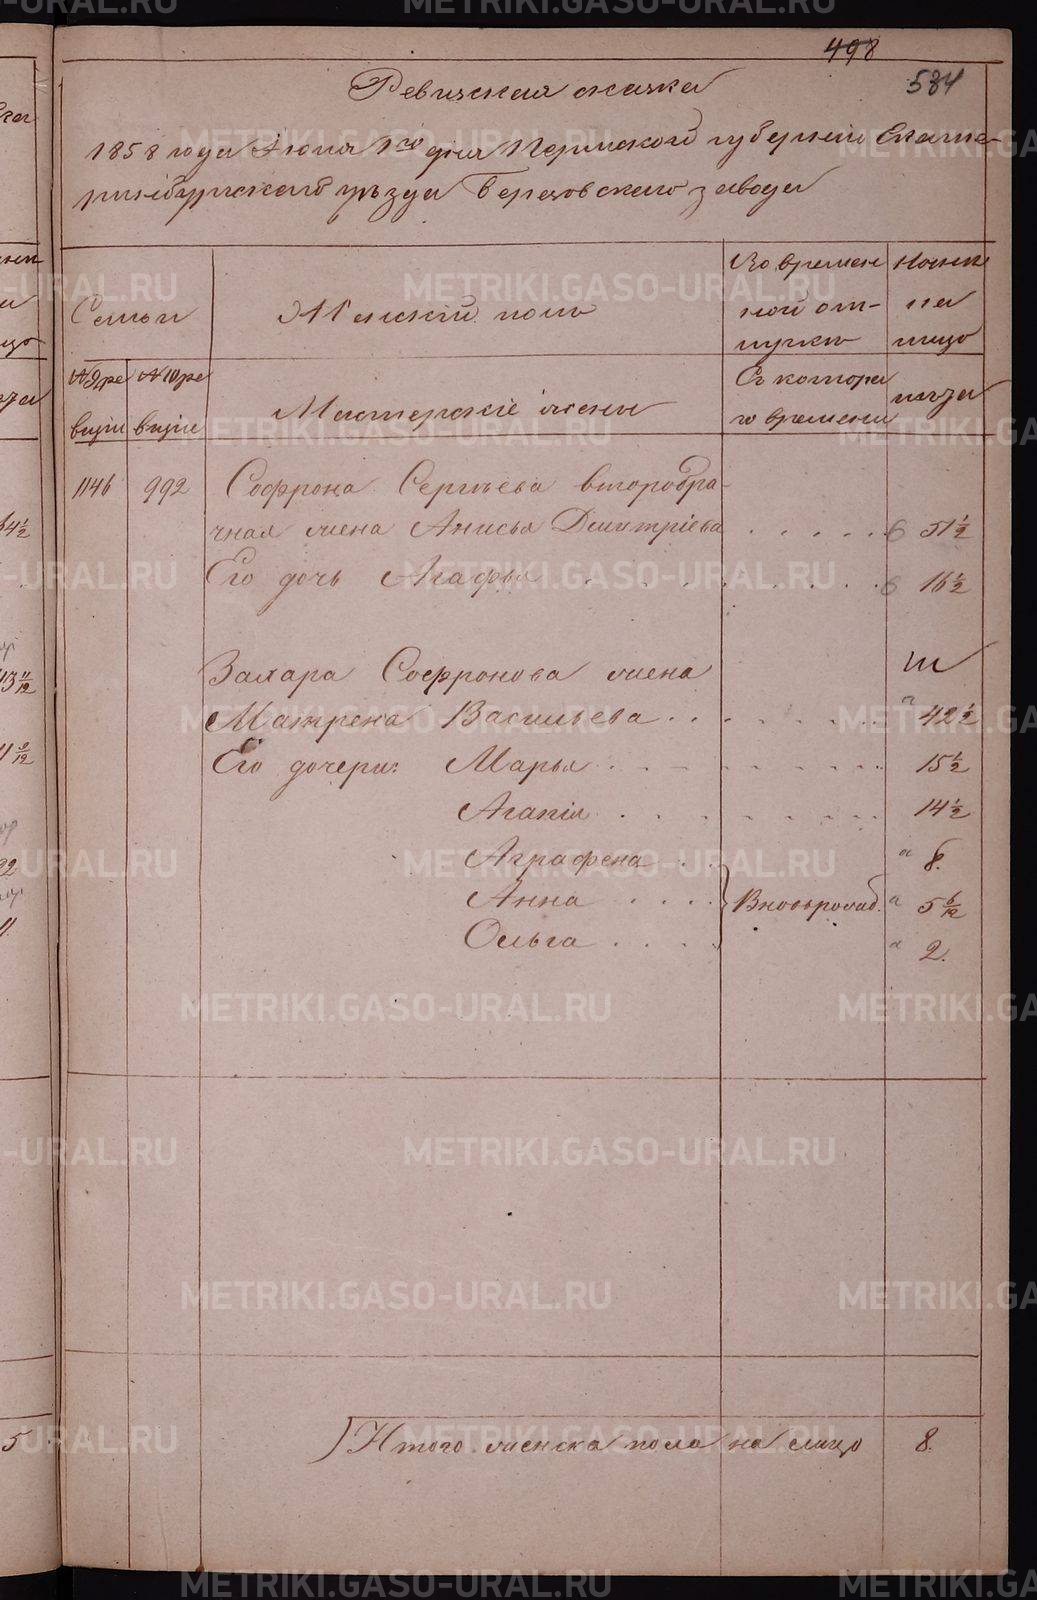 498
584
Ревизская сказка
1858 года Июня 1го дня Пермской губернiи Екате-
ринбургскаго уѣзда Березовскаго завода
Семьи
Женскiй полъ
Во времен
ной от-
лучкѣ
Ныне
на
лицо
№ 9 ре
визiи
№ 10 ре
визiи
Мастерскiе жены
Съ котора
го времени
лѣта
1146 992 Софрона Сергѣева второбра-
чная жена Анисья Дмитрiева 51 1/2
Его дочь Агафья 16 1/2
Захара Софронова жена
Матрена Васильева 42 1/2
Его дочери: Марья 15 1/2
Агапiя 14 1/2
Аграфена 8.
Анна Вновьрожд. 5 6/12
Ольга 2.
Итого женска пола на лицо 8.
METRIKI.GASO-URAL.RU